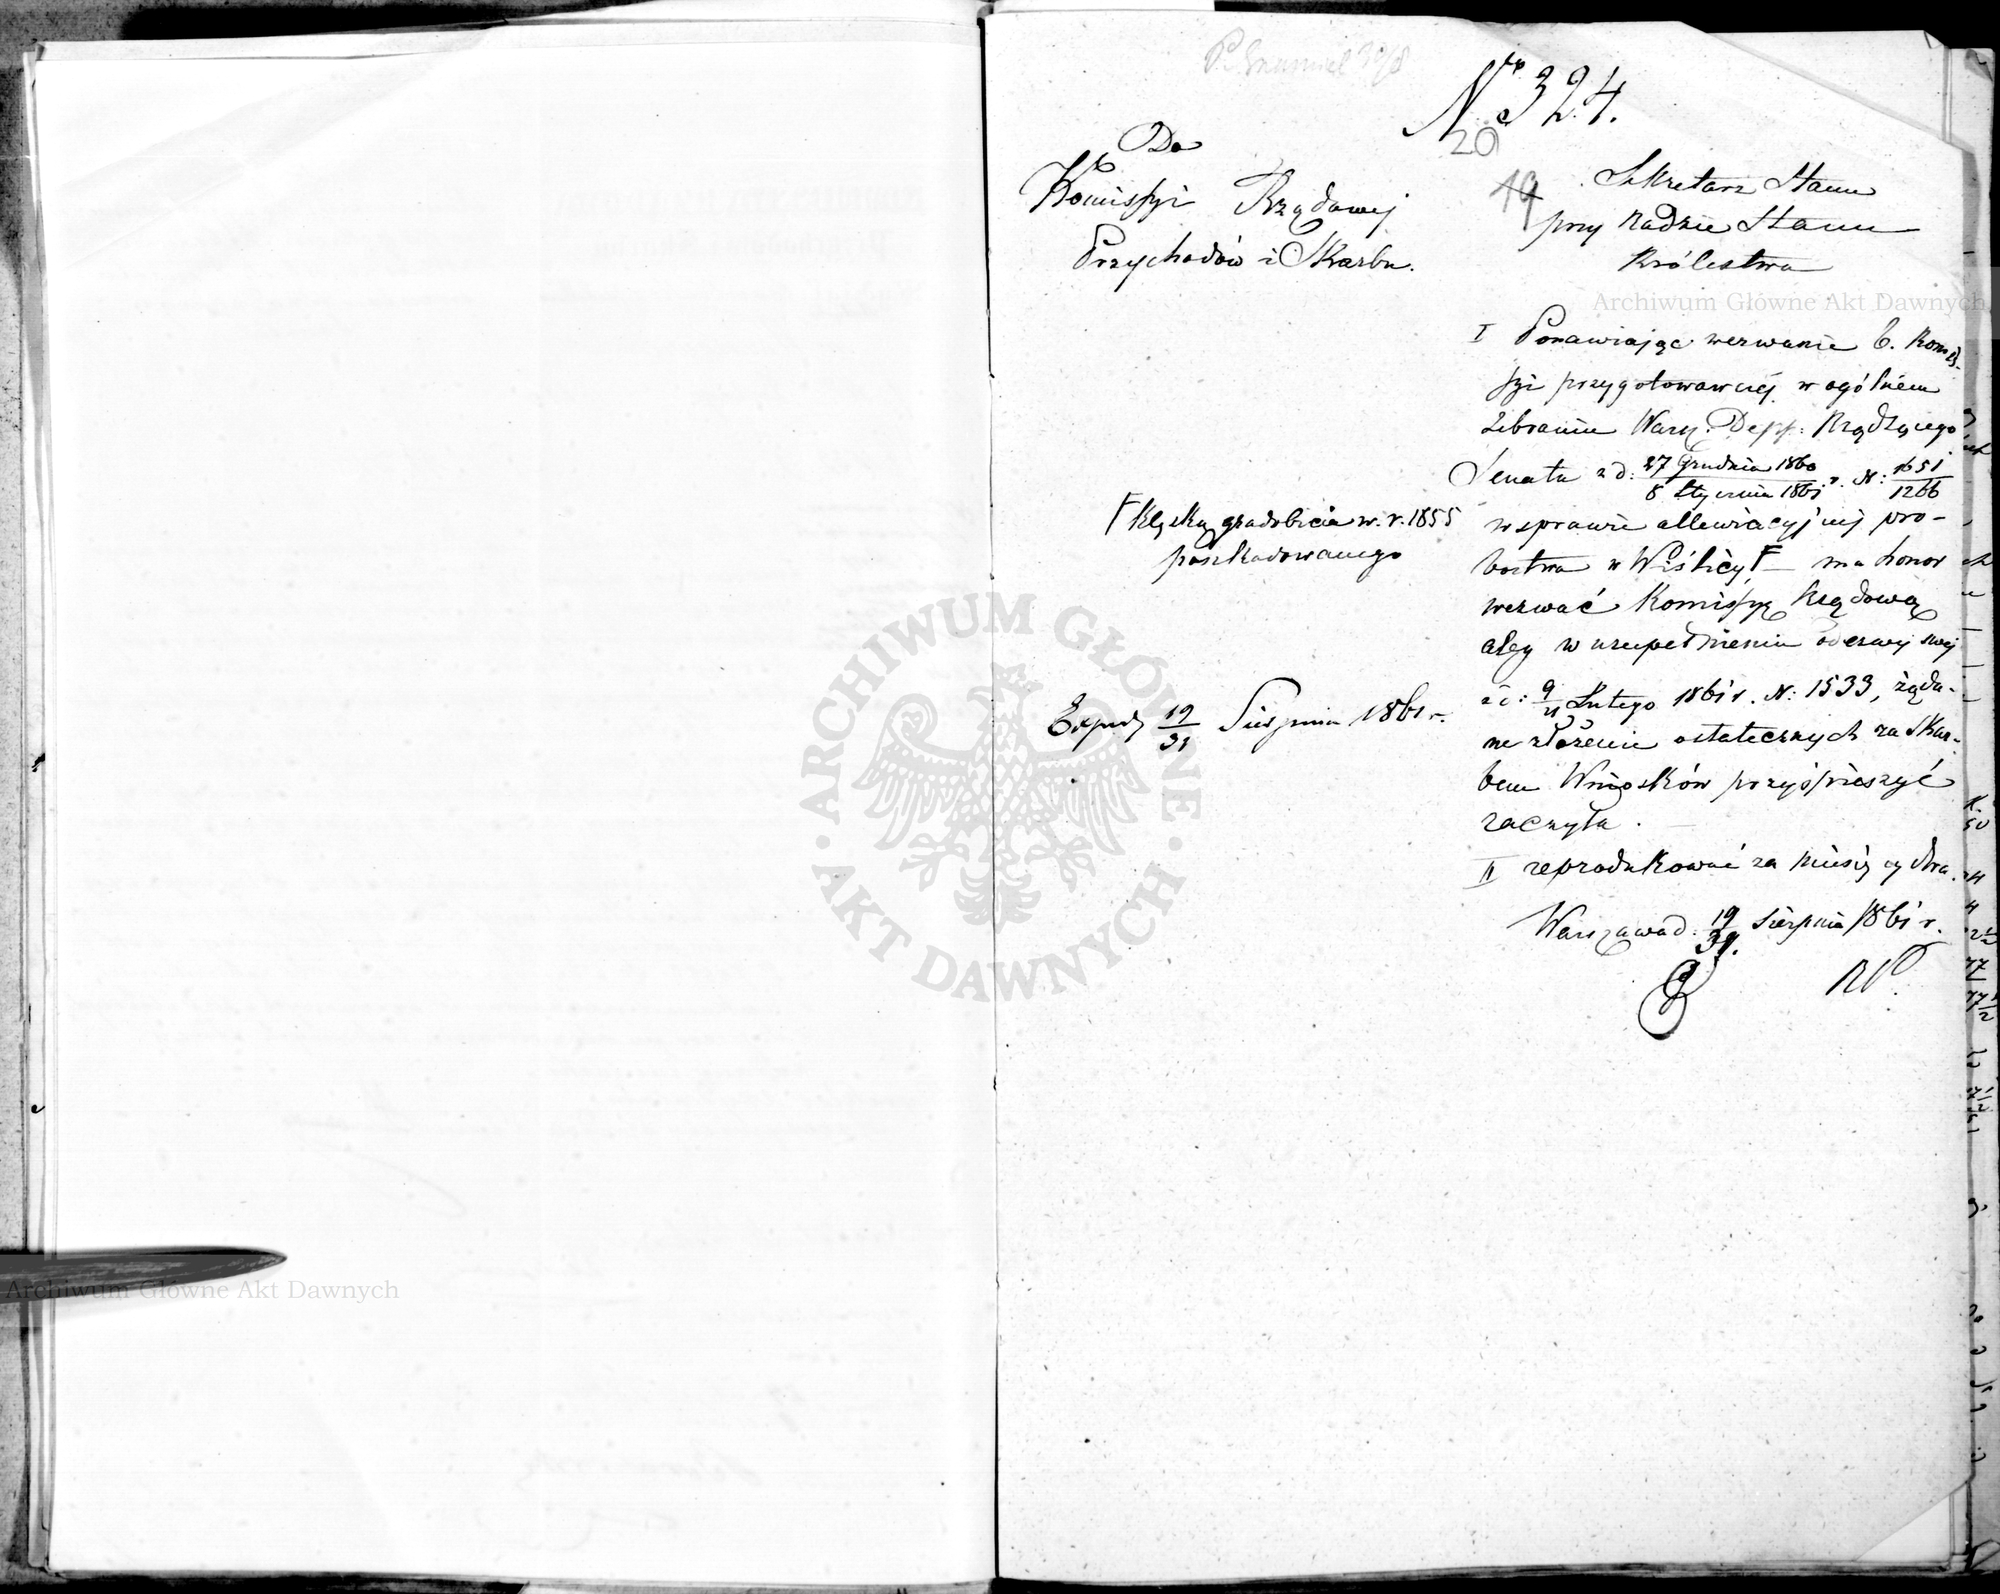 Nr 324.
20
19
Do
Komissyi Rządowej
Przychodów i Skarbu.
Sekretarz Stanu
przy Radzie Stanu
Królestwa
I Ponawiając wezwanie b. Komis-
syi przygotowawczej w ogólnem
Zebraniu Warsz. Depp: Rządzącego
Senatu z d: 27 Grudnia 1860 / 8 Stycznia 1861 r. N: 1651 / 1266
w sprawie allewiacyjnej pro-
bostwa w Wiślicy F ma honor
wezwać Komissyę Rządową
aby w uzupełnieniu odezwy swej
z d: 9/21 Lutego 1861 r. N: 1533, żąda-
ne złożenie ostatecznych za Skar-
bem Wniosków przyśpieszyć
raczyła.
II reprodukować za miesięcy dwa.
Warszawa d: 19/31. Sierpnia 1861 r.
F klęską gradobicia w r. 1855
poszkodowanego
Exped 19/31 Sierpnia 1861 r.
Archiwum Główne Akt Dawnych
ARCHIWUM GŁÓWNE · AKT DAWNYCH ·
Archiwum Główne Akt Dawnych